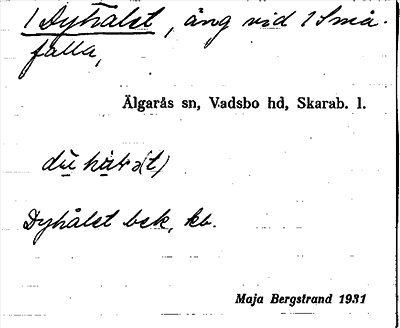 1 Dyhålet, äng vid 1 Små-
falla,
Älgarås sn, Vadsbo hd, Skarab. l.
Dyhålet bsk, kb.
Maja Bergstrand 1931